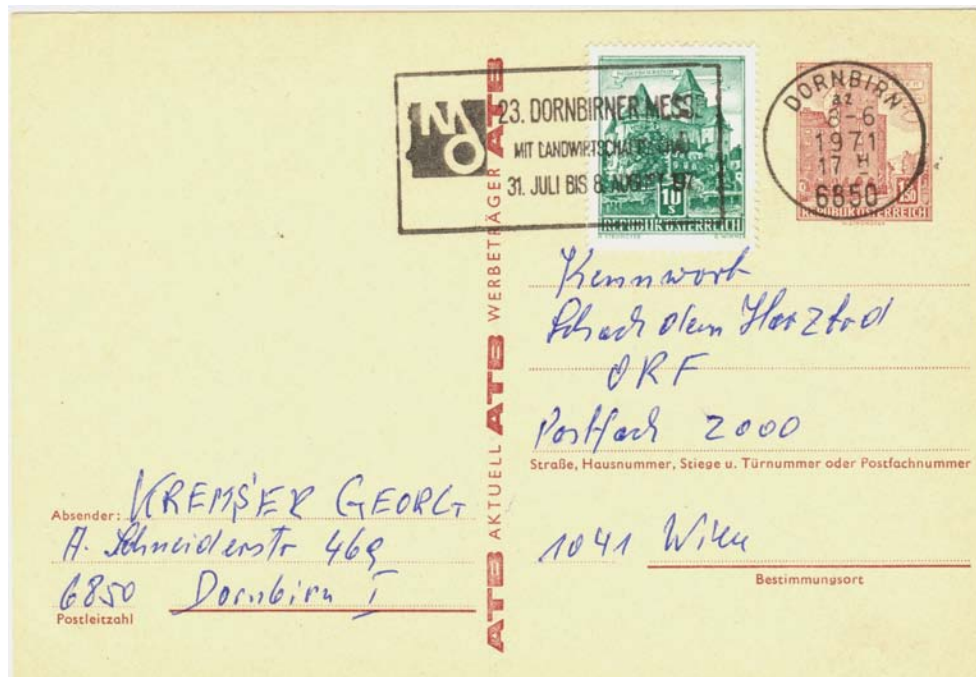 23. DORNBIRNER MESSE
MIT LANDWIRTSCHAFTSSCHAU
31. JULI BIS 8. AUGUST
10
S
REPUBLIK ÖSTERREICH
DORNBIRN
az
8-6
1971
17 H
6850
REPUBLIK ÖSTERREICH
ATB AKTUELL ATB WERBETRÄGER ATB
Kennwort
Schach dem Herztod
ORF
Postfach 2000
Straße, Hausnummer, Stiege u. Türnummer oder Postfachnummer
1041 Wien
Bestimmungsort
Absender: KREMSER GEORG
A. Schneiderstr 46g
6850 Dornbirn I
Postleitzahl